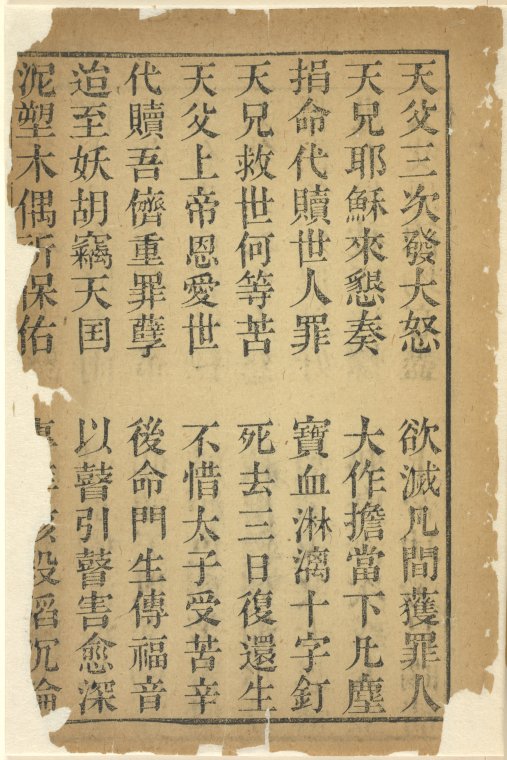 天父三次發大怒　欲滅凡間獲罪人
天兄耶穌來懇奏　大作擔當下凡塵
捐命代贖世人罪　寶血淋漓十字釘
天兄救世何等苦　死去三日復還生
天父上帝恩愛世　不惜太子受苦辛
代贖吾儕重罪孽　後命門生傳福音
迨至妖胡竊天囯　以瞽引瞽害愈深
泥塑木偶祈保佑　沒滔沉淪